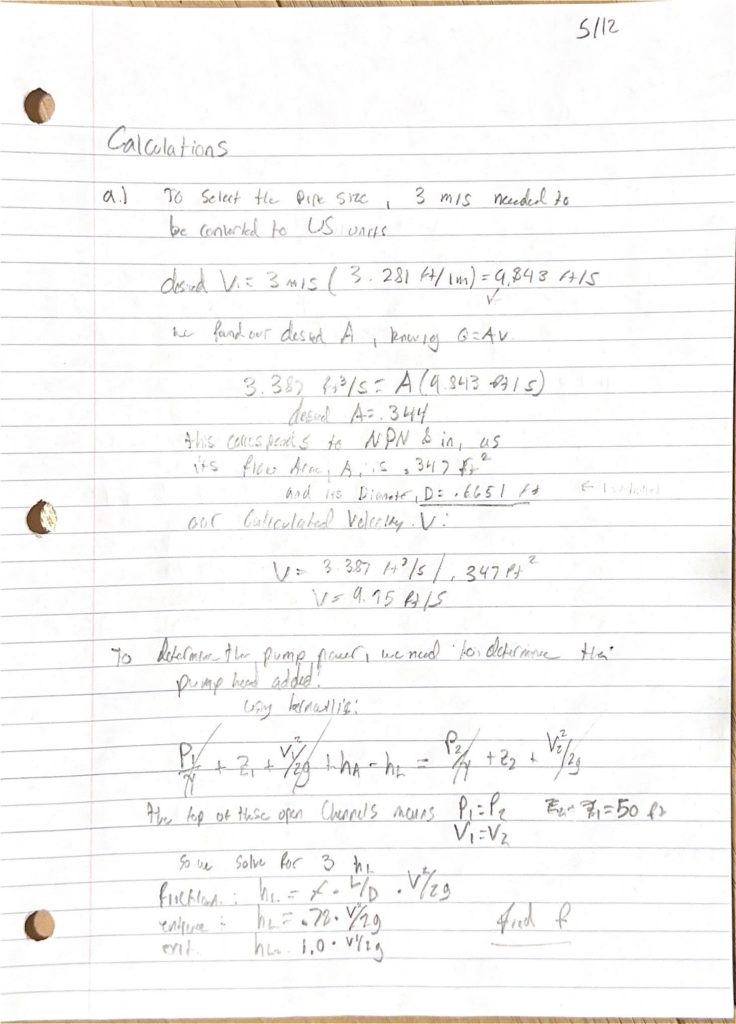 5/12
Calculations
a.) To select the pipe size, 3 m/s needed to
be converted to US units
desired V = 3 m/s (3.281 ft/1m) = 9.843 ft/s
we found our desired A, knowing Q=AV.
3.387 ft³/s = A(9.843 ft/s)
desired A = .344
this corresponds to NPN 8 in, as
its flow Area, A, is .347 ft²
and its Diameter, D = .6651 ft ←
our Calculated Velocity, V:
V = 3.387 ft³/s / .347 ft²
V = 9.75 ft/s
To determine the pump power, we need to determine the
pump head added:
using bernoulli's:
P₁/γ + Z₁ + V₁²/2g + hA - hL = P₂/γ + Z₂ + V₂²/2g
the top of these open Channels means P₁=P₂ Z₂-Z₁=50 ft
V₁=V₂
So we solve for 3 hL
friction: hL = f · L/D · V²/2g
entrance: hL = .78 · V²/2g find f
exit: hL = 1.0 · V²/2g